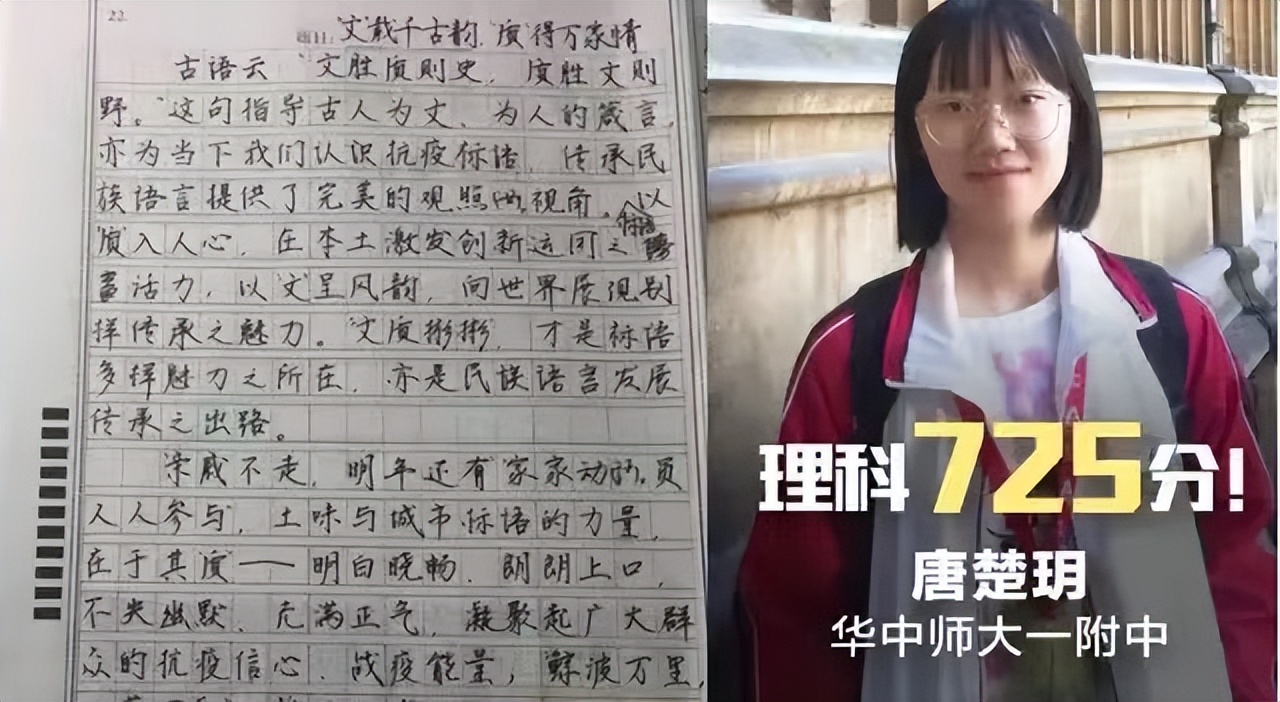 22
题目:"文"载千古韵,"质"得万家情
古语云"文胜质则史,质胜文则
野。"这句指导古人为文、为人的箴言,
亦为当下我们认识抗疫标语、传承民
族语言提供了完美的观照视角。以
"质"入人心,在本土激发创新运用之标语
活力,以"文"呈风韵,向世界展现别
样传承之魅力。"文质彬彬",才是标语
多样魅力之所在,亦是民族语言发展
传承之出路。
亲戚不走,明年还有"家家动员
人人参与,土味与城市标语的力量,
在于其质——明白晓畅、朗朗上口,
不失幽默、充满正气,凝聚起广大群
众的抗疫信心、战疫能量,鲸波万里,
理科725分!
唐楚玥
华中师大一附中